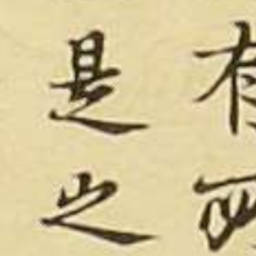 有
是之